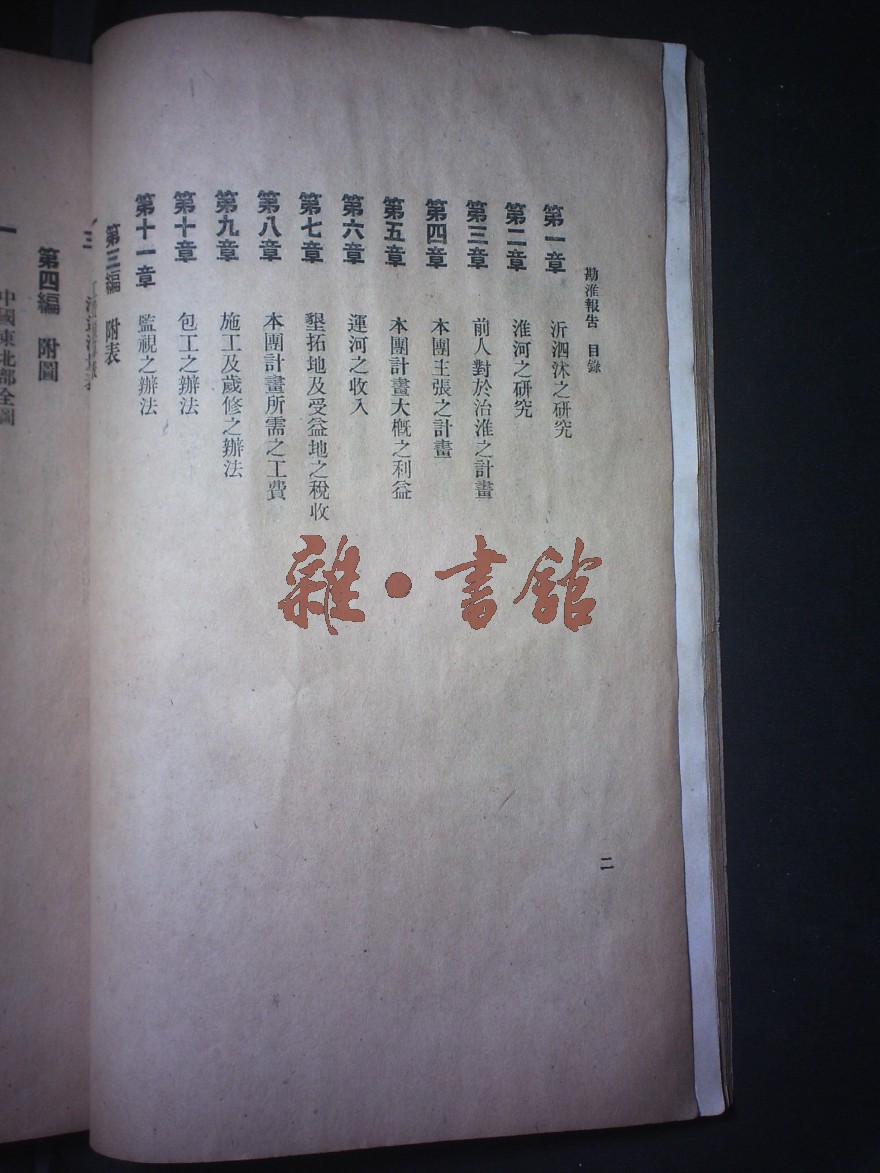 勘淮報告 目錄
第一章 沂泗沭之研究
第二章 淮河之研究
第三章 前人對於治淮之計畫
第四章 本團主張之計畫
第五章 本團計畫大概之利益
第六章 運河之收入
第七章 墾拓地及受益地之稅收
第八章 本團計畫所需之工費
第九章 施工及歲修之辦法
第十章 包工之辦法
第十一章 監視之辦法
第三編 附表
二
第四編 附圖
一 中國東北部全圖
雜·書館